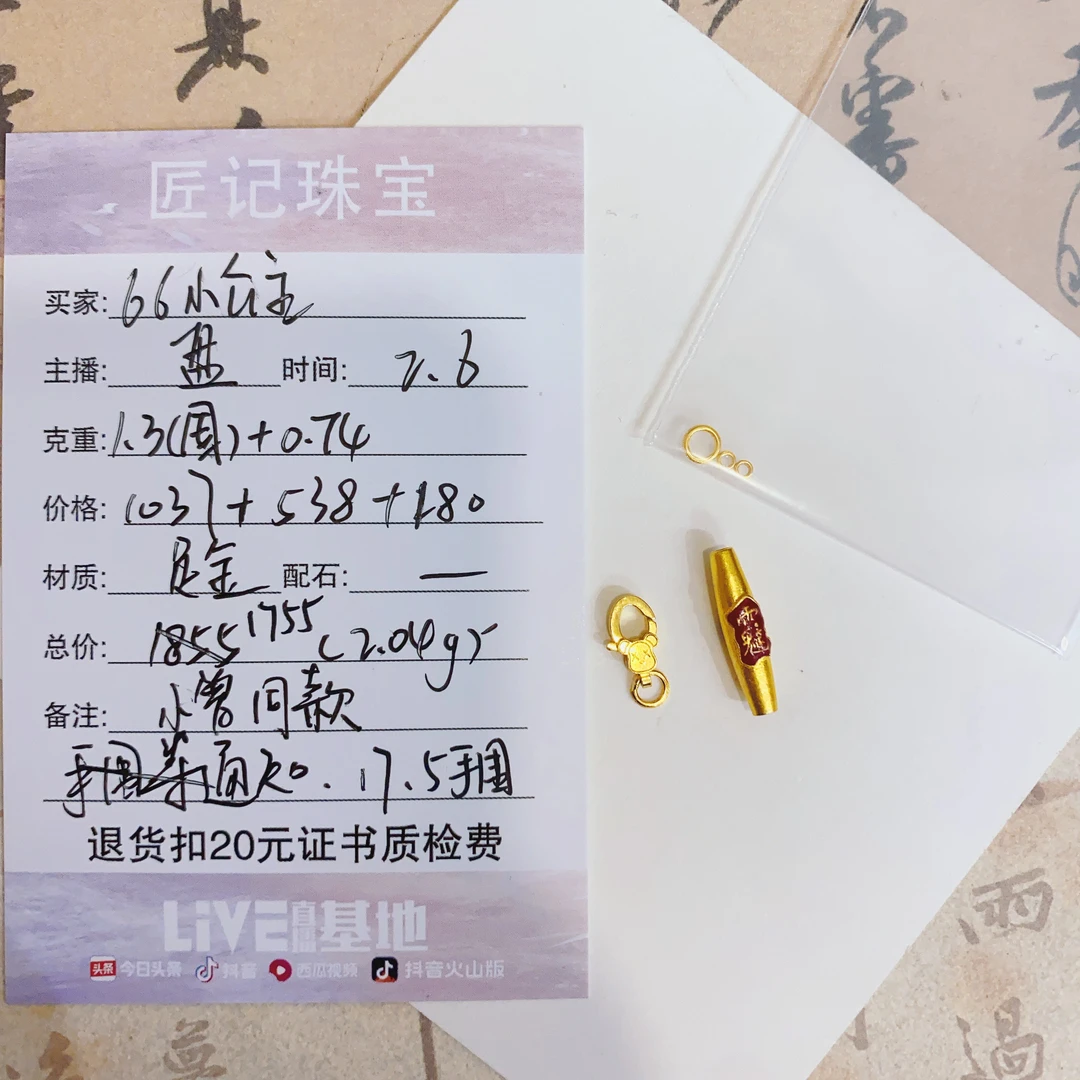 匠记珠宝
买家: 66小公主
主播: 时间: 7.6
克重: 1.3(圆)+0.74
价格: 1037+538+180
材质: 足金 配石: —
总价: 1855 1755 (2.04g)
备注: 小曾同款
手围等通知. 17.5手围
退货扣20元证书质检费
LiVE直播基地
头条 今日头条 抖音 西瓜视频 抖音火山版
雨
過